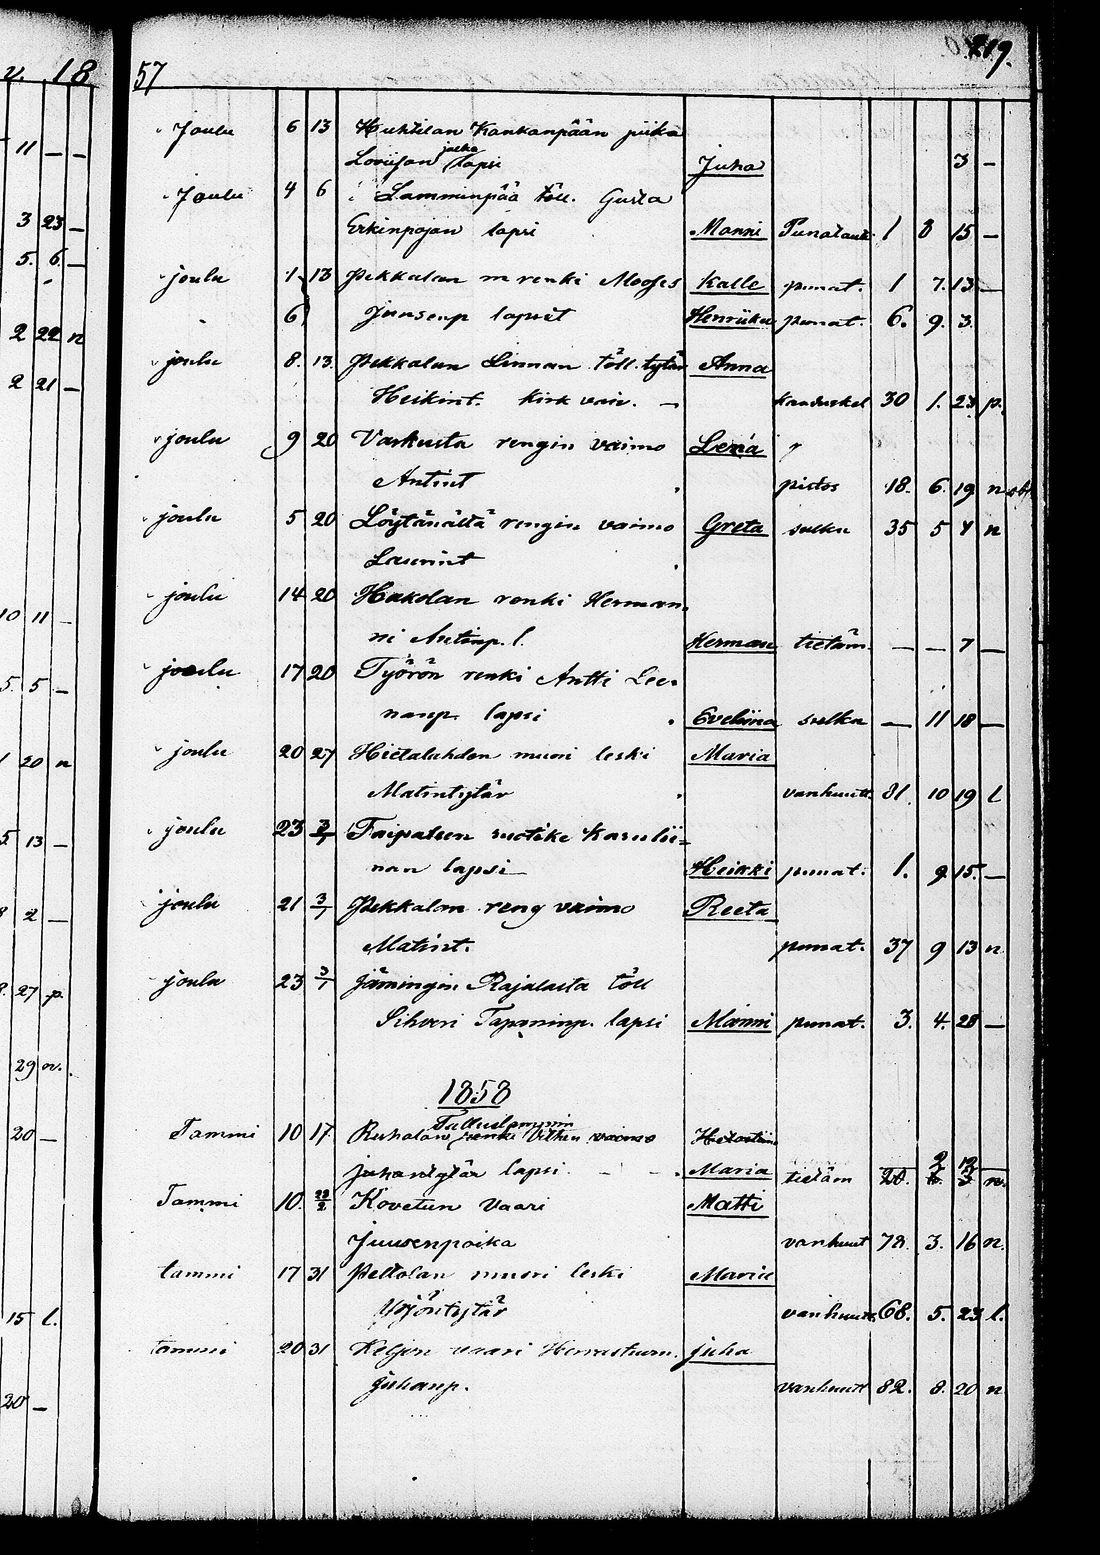 v. 18 57 219.
11 — —
3 23 —
5. 6. —
2 22 n
2 21 —
10 11 —
5. 5 —
20 n
13 —
2 —
27 p.
29 n.
20 —
15 l.
20 —
Joulu 6 13 Huhtilan Kankanpään piika
Loviisan lapsi Juha 3 —
Joulu 4 6 Lamminpää töll. Gusta
Erkinpojan lapsi Manni Punataut 1 8 15 —
joulu 1 13 Pekkalan m renki Mooses Kalle punat. 1 7. 13 —
6 Juusenp lapset Henriika punat. 6. 9. 3.
joulu 8. 13. Pekkalan Linnan töll. tytär Anna
Heikint. Kirk vaiv. — 30 1. 23 p.
joulu 9 20 Varkusta rengin vaimo Leena
Antint pistos 18. 6. 19 n
joulu 5 20 Löytänältä rengin vaimo Greta sulku 35 5 4 n
Laurint
joulu 14 20 Hakolan renki Herman-
ni Antinp. l. Herman tietäm. — — 7 —
joulu 17 20 Työrön renki Antti Lee-
nanp. lapsi Eveliina sulku — 11 18 —
joulu 20 27 Hietalahden muori leski Maria
Matintytär vanhuutt. 81. 10 19 l
joulu 23 3/1 Taipaleen ruotike Karolii=
nan lapsi Heikki punat. 1. 9 15. —
joulu 21 3/1 Pekkalan reng vaimo Reeta
Matint. punat. 37 9 13 n
joulu 23 3/1 Jämingin Rajalasta töll
Sihveri Tapaninp. lapsi Manni punat. 3. 4. 28 —
1858
Tammi 10 17 Ruhalan renki vaimo
juhantytär lapsi Maria tietäm n.
Tammi 10. Kovetun Vaari Matti
Juusenpoika vanhuut 78. 3. 16 n.
tammi 17 31 Peltolan muori leski Maria
Yrjöntytär vanhuutt. 68. 5. 23 l.
tammi 20 31 Keljon vaari juha
juhanp. vanhuutt 82. 8. 20 n